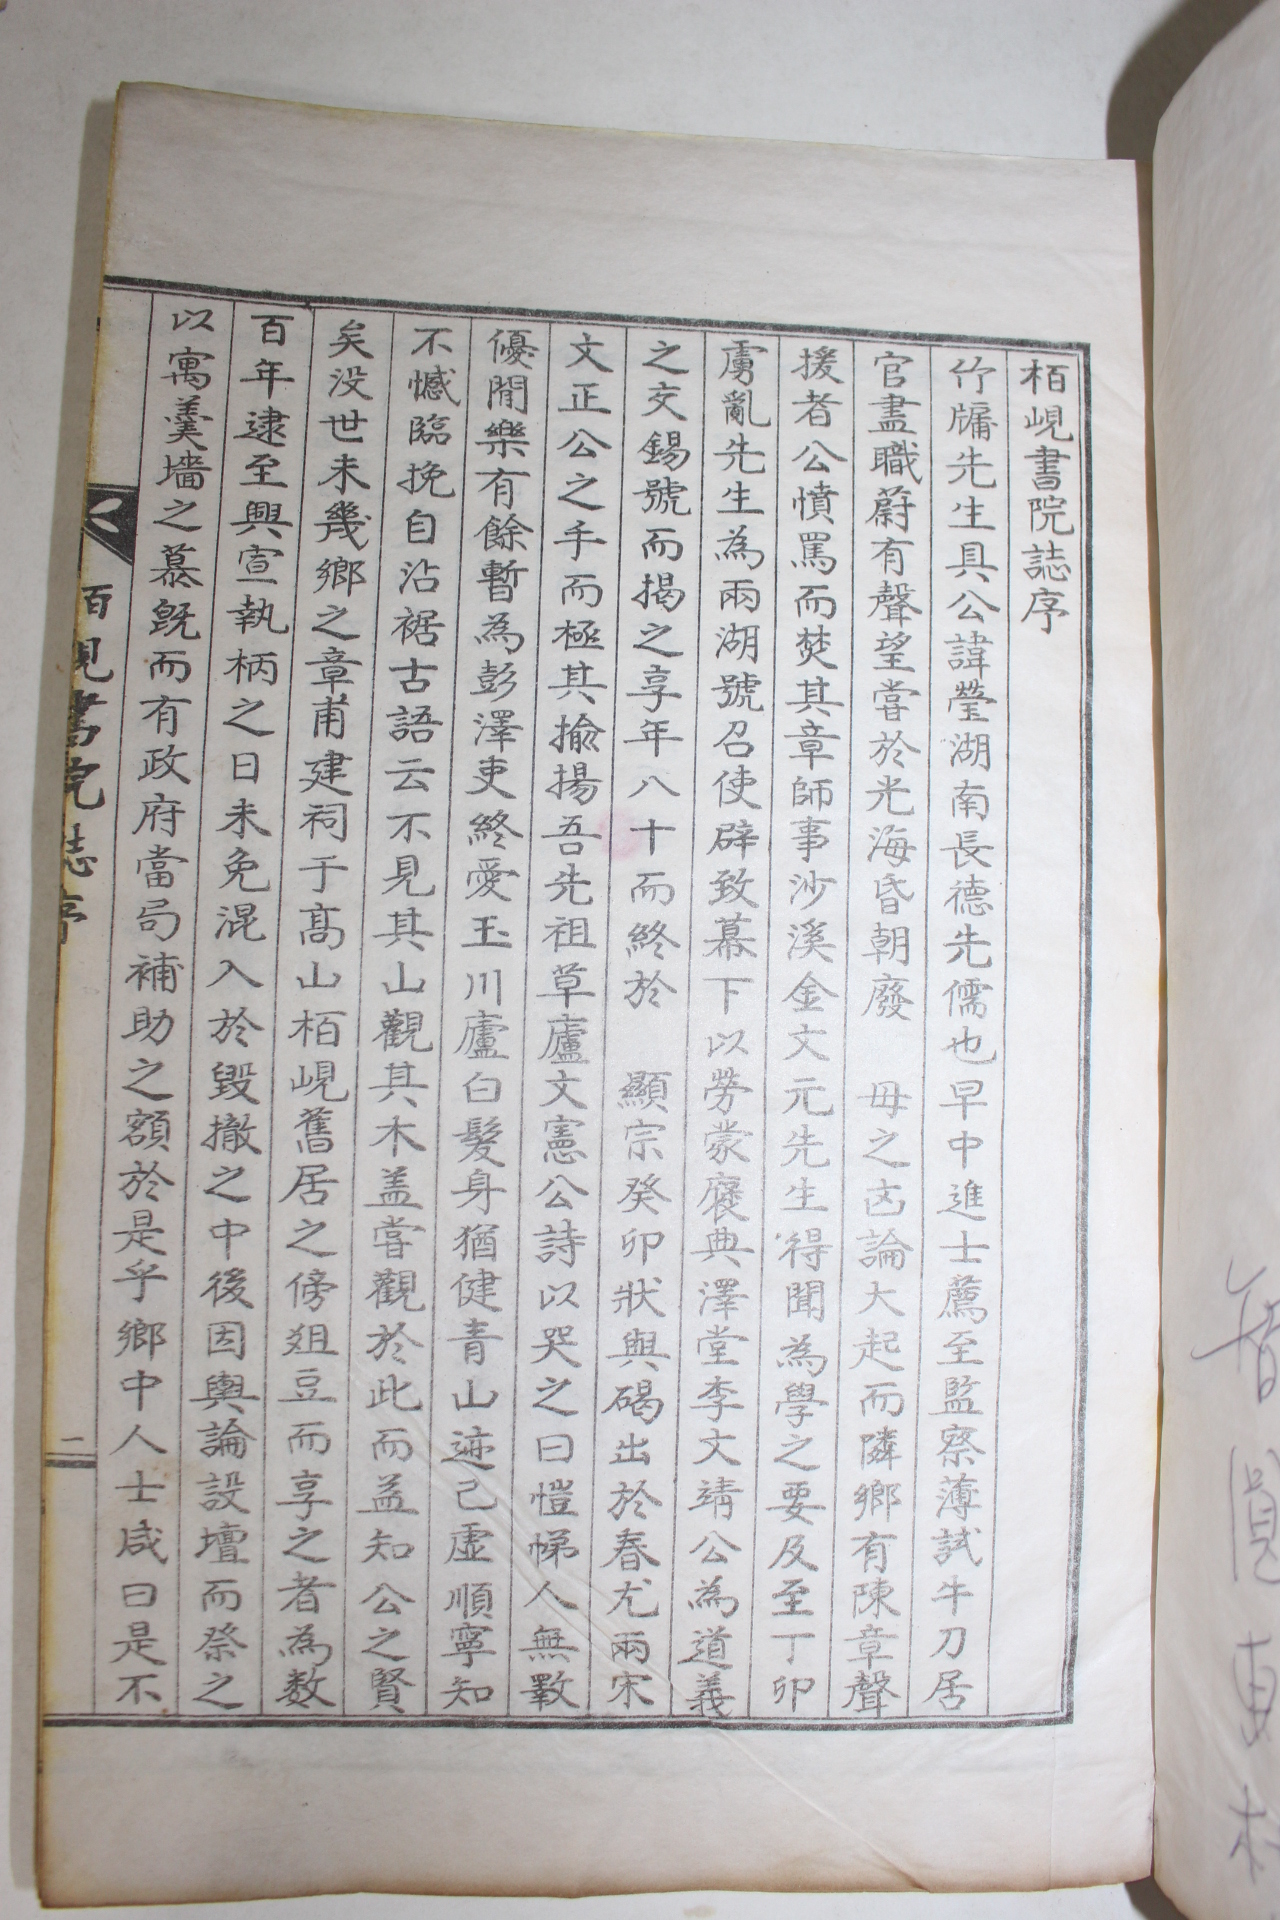 栢峴書院誌序
竹牗先生具公諱瑩湖南長德先儒也早中進士薦至監察薄試牛刀居
官盡職蔚有聲望嘗於光海昏朝廢 毋之凶論大起而隣鄉有陳章聲
援者公憤罵而焚其章師事沙溪金文元先生得聞為學之要及至丁卯
虜亂先生為兩湖號召使辟致幕下以勞蒙襃典澤堂李文靖公為道義
之交錫號而揭之享年八十而終於 顯宗癸卯狀與碣出於春尤兩宋
文正公之手而極其揄揚吾先祖草廬文憲公詩以哭之曰愷悌人無斁
優閒樂有餘暫為彭澤吏終愛玉川廬白髮身猶健青山迹已虛順寧知
不憾臨挽自沾裾古語云不見其山觀其木盖嘗觀於此而益知公之賢
矣没世未幾鄉之章甫建祠于髙山栢峴舊居之傍俎豆而享之者為数
百年逮至興宣執柄之日未免混入於毀撤之中後因輿論設壇而祭之
以寓羹墻之慕旣而有政府當局補助之額於是乎鄉中人士咸曰是不
栢峴書院誌序
一